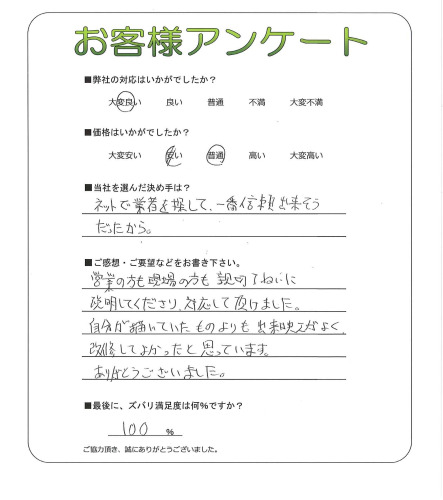 お客様アンケート
■弊社の対応はいかがでしたか？
大変良い 良い 普通 不満 大変不満
■価格はいかがでしたか？
大変安い 安い 普通 高い 大変高い
■当社を選んだ決め手は？
ネットで業者を探して、一番信頼出来そう
だったから。
■ご感想・ご要望などをお書き下さい。
営業の方も現場の方も親切ていねいに
説明してくださり、対応して頂けました。
自分が描いていたものよりも出来映えがよく、
改修してよかったと思っています。
ありがとうございました。
■最後に、ズバリ満足度は何%ですか？
100 %
ご協力頂き、誠にありがとうございました。